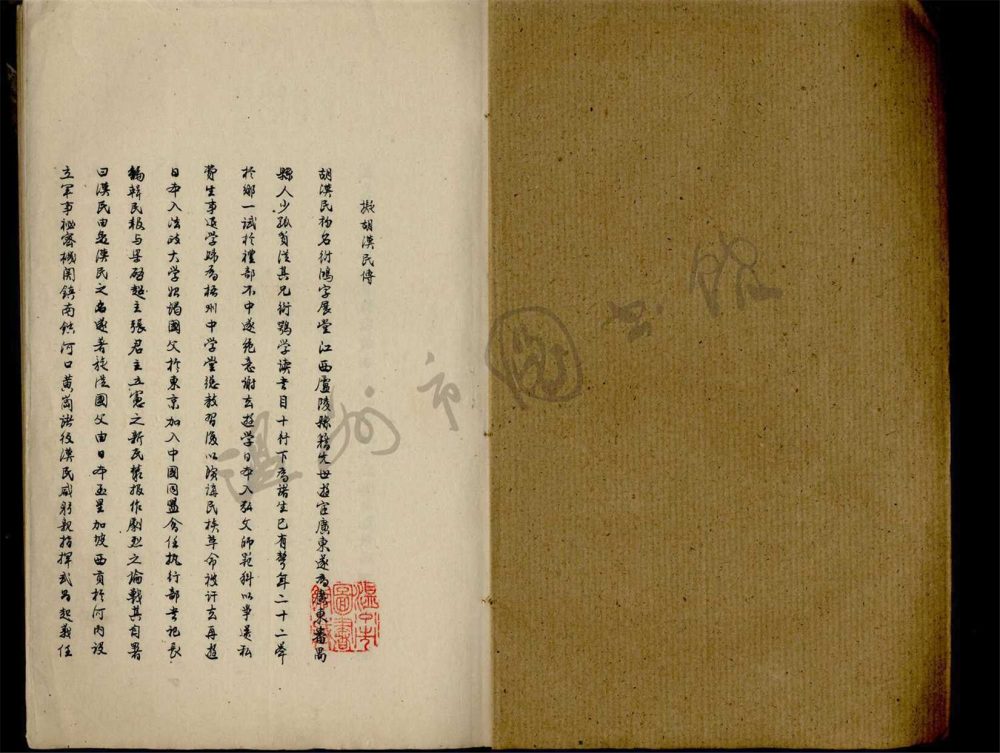 擬胡漢民傳
胡漢民初名衍鴻字展堂江西廬陵縣籍先世遊宦廣東遂為廣東番禺
縣人少孤貧從其兄衍鶚學读書目十行下為諸生已有聲年二十二舉
於鄉一試於禮部不中遂絕意謝去遊学日本入弘文師範科以爭送私
費生事退学歸為梧州中学堂總教習後以演講民族革命被訐去再遊
日本入法政大学始謁國父於東京加入中國同盟会任执行部書記長
編輯民報与梁啟超主張君主立憲之新民叢报作劇烈之論戰其自署
曰漢民由是漢民之名遂著旋從國父由日本至星加坡西貢於河内设
立軍事祕密機関鎮南欽河口黃崗諸役漢民咸躬親指揮武昌起義任
溫州市圖書館
溫州市圖書館